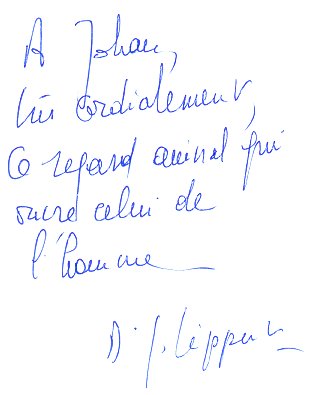 A Johan,
très cordialement,
Ce regard animal qui
ouvre celui de
l'homme